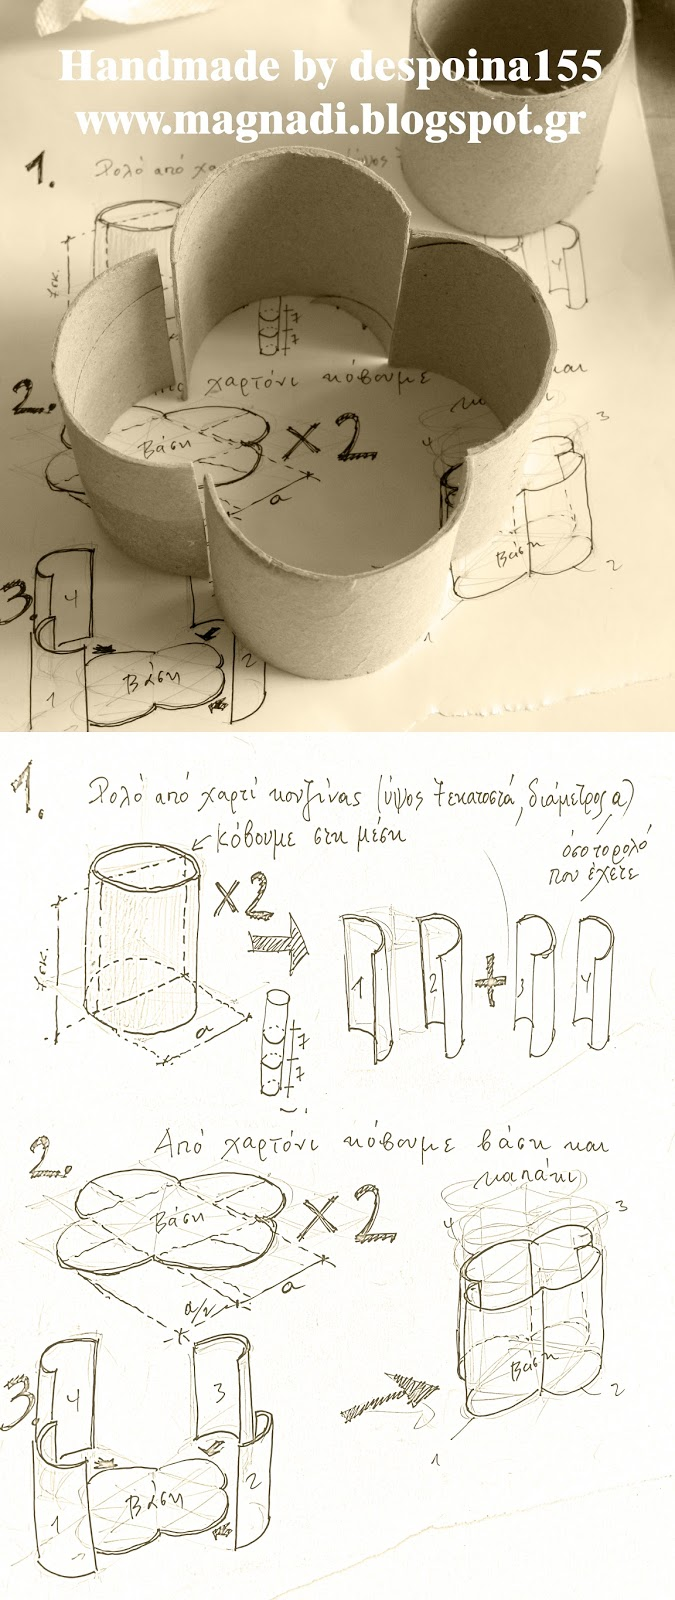 Handmade by despoina155
www.magnadi.blogspot.gr
1. Ρολό από χα
7εκ.
4
7
7
2.
χαρτόνι κόβουμε
και
Βάση
x2
a
4
3
Βάση
2
1
3.
4
1
Βάση
2
1. Ρολό από χαρτί κουζίνας (ύψος 7εκατοστά, διάμετρος a)
κόβουμε στη μέση
όσο το ρολό
που έχετε
x2
7εκ.
a
7
7
1
2
+
3
4
2. Από χαρτόνι κόβουμε βάση και
καπάκι
Βάση
x2
a/2
a
4
3
Βάση
2
1
3.
4
3
1
Βάση
2